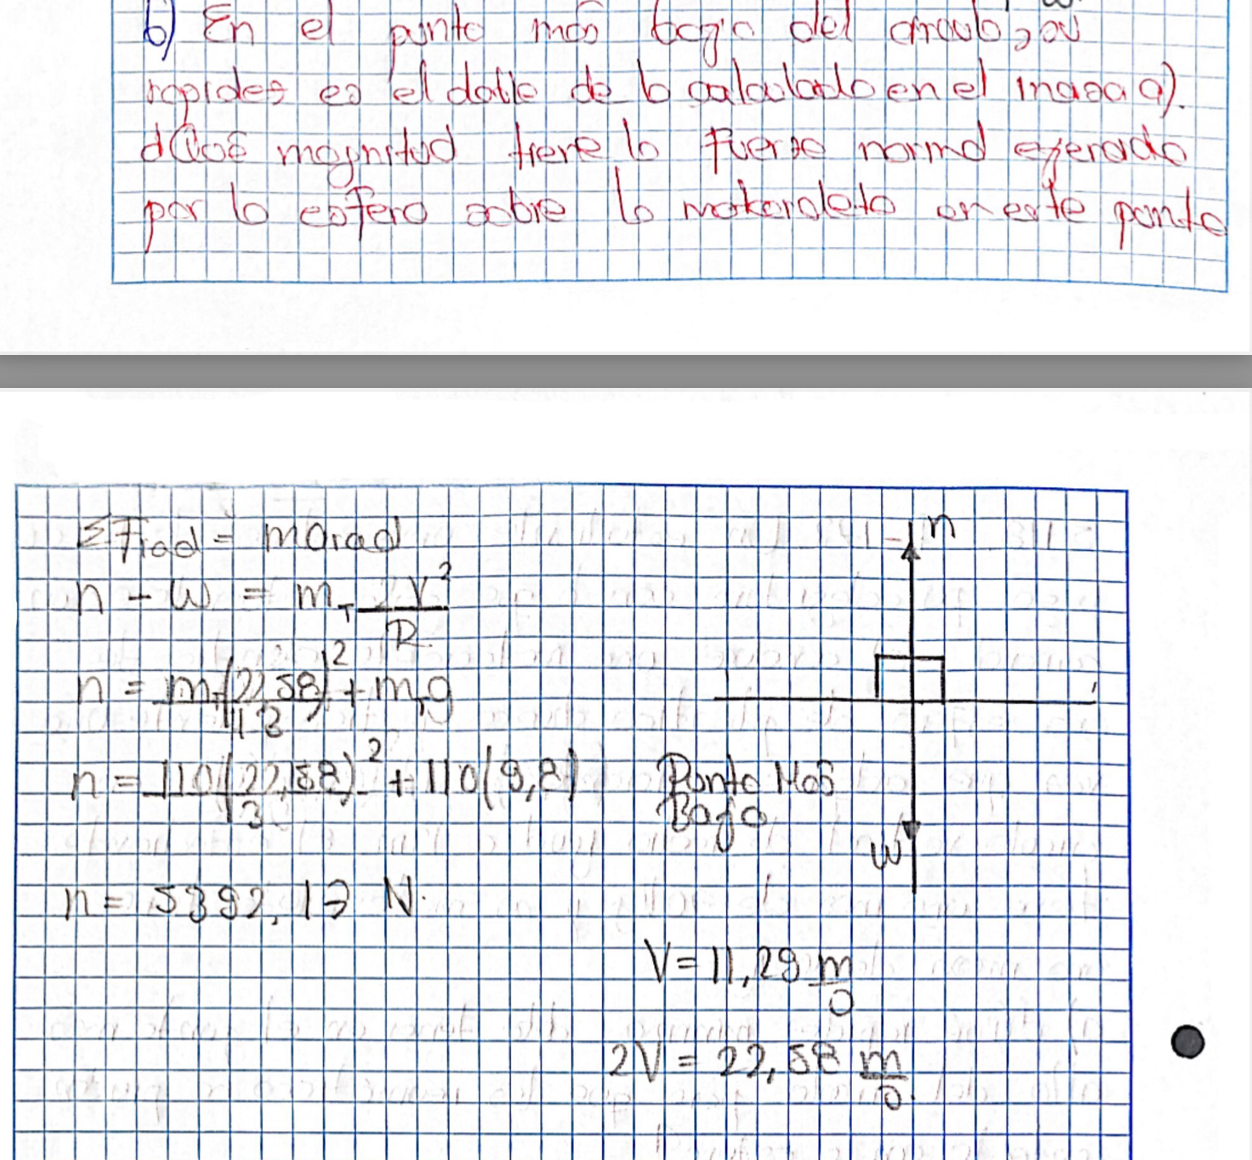 b) En el punto más bajo del circulo, su
rapides es el doble de lo calculado en el inciso a).
¿Qué magnitud tiene la fuerza normal ejercida
por la esfera sobre la motocicleta en este punto
ΣFrad = marad
n - w = m_T 2V²/R
n = m_T(22,58)²/13 + m_Tg
n = 110(22,58)²/13 + 110(9,8)
n = 5392,13 N.
n
Punto Mas
Bajo
w
V = 11,29 m/s
2V = 22,58 m/s.